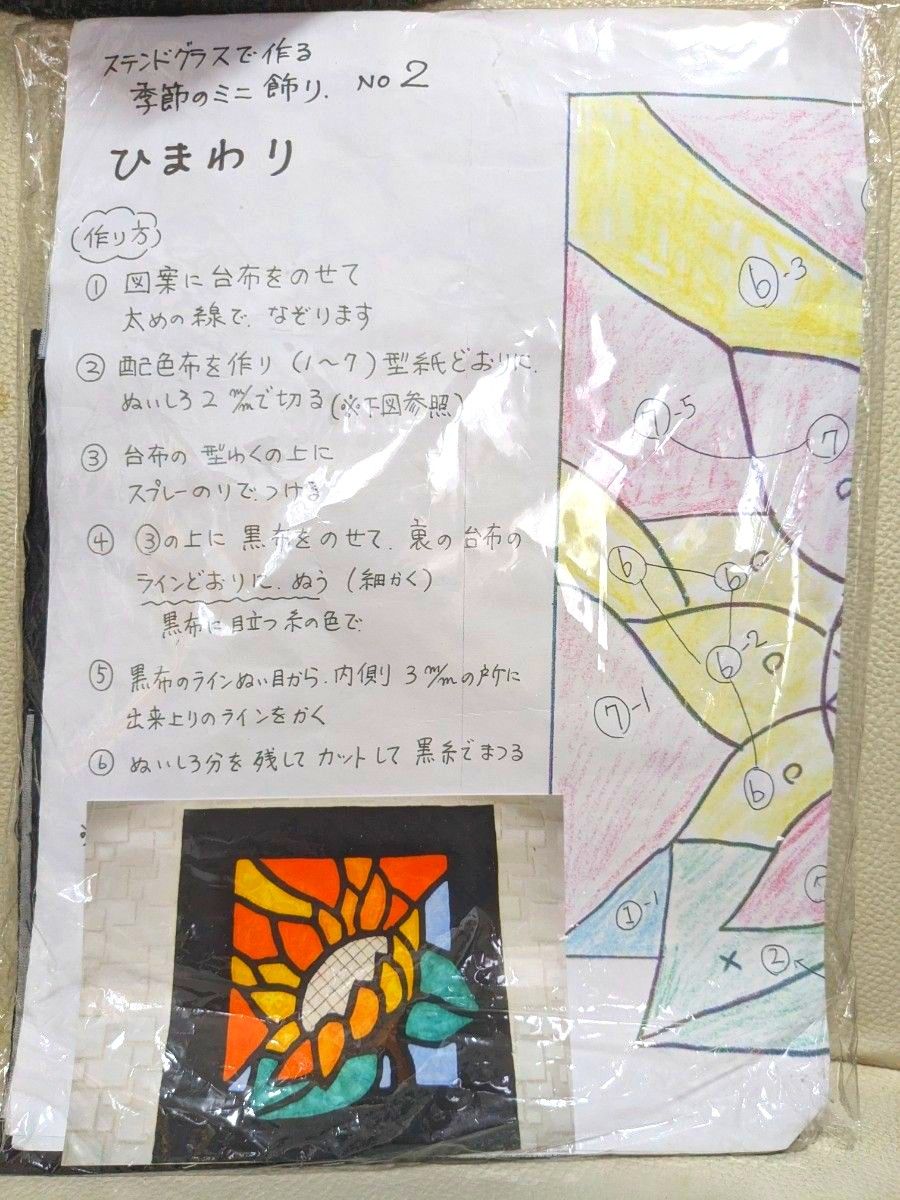 ステンドグラスで作る
季節のミニ飾り. NO 2
ひまわり
作り方
① 図案に台布をのせて
太めの線で、なぞります
② 配色布を作り (1〜7) 型紙どおりに、
ぬいしろ 2 m/mで切る (※下図参照)
③ 台布の 型わくの上に
スプレーのりで、つける
④ ③の上に 黒布をのせて、裏の台布の
ラインどおりに、ぬう (細かく)
黒布に目立つ糸の色で
⑤ 黒布のラインぬい目から、内側 3 m/mの所に
出来上りのラインをかく
⑥ ぬいしろ分を 残して カットして 黒糸でまつる
※
⑥-3
⑦-5
⑦
⑥
⑥
⑥-2
⑦-1
⑥
①-1
× ②